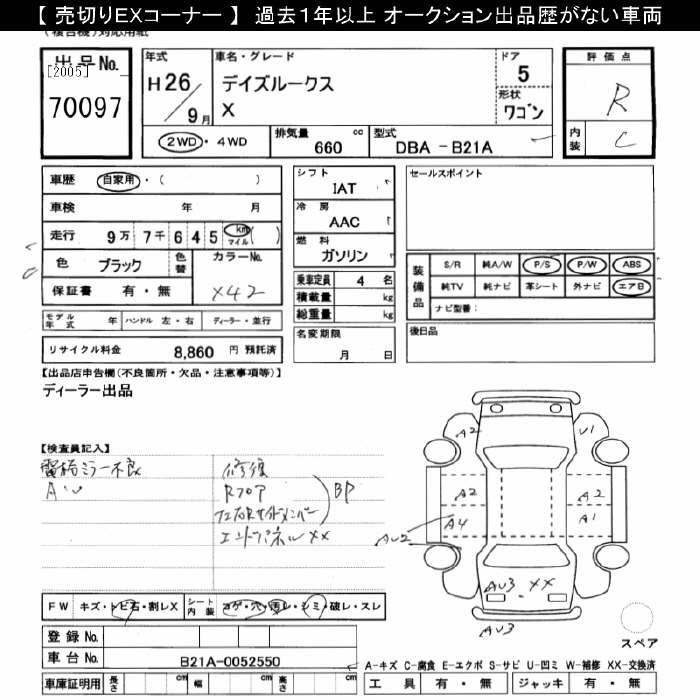 【 売切りEXコーナー 】 過去1年以上 オークション出品歴がない車両
(複合機)対応用紙
出品No.
[2005]
70097
年式
H26/9月
車名・グレード
デイズルークス
X
ドア
5
形状
ワゴン
評価点
R
内装
C
2WD・4WD
排気量 cc
660
型式
DBA-B21A
車歴 自家用・( )
車検 年 月
走行 9万 7千 6 4 5 km マイル ( )
色 ブラック 色替 カラーNo.
X42
保証書 有・無
モデル年式 年 ハンドル 左・右 ディーラー・並行
リサイクル料金 8,860 円 預託済
シフト
IAT
冷房
AAC
燃料
ガソリン
乗車定員 4 名
積載量 kg
総重量 kg
名変期限
月 日
セールスポイント
装備品
S/R 純A/W P/S P/W ABS
純TV 純ナビ 革シート 外ナビ エアB
ナビ型番:
後日品
【出品店申告欄(不良箇所・欠品・注意事項等)】
ディーラー出品
【検査員記入】
電格ミラー不良
AU
修復
Rフロア
BP
エンドパネルXX
A2
U1
A2
A4
A2
A1
AU2
AU3
XX
AU3
FW キズ・トビ石・割レX
シート内装 コゲ・穴・汚レ・シミ・破レ・スレ
登録No.
車台No. B21A-0052550
車庫証明用 長さ cm 幅 cm 高さ cm
スペア
A-キズ C-腐食 E-エクボ S-サビ U-凹ミ W-補修 XX-交換済
工具 有・無 ジャッキ 有・無